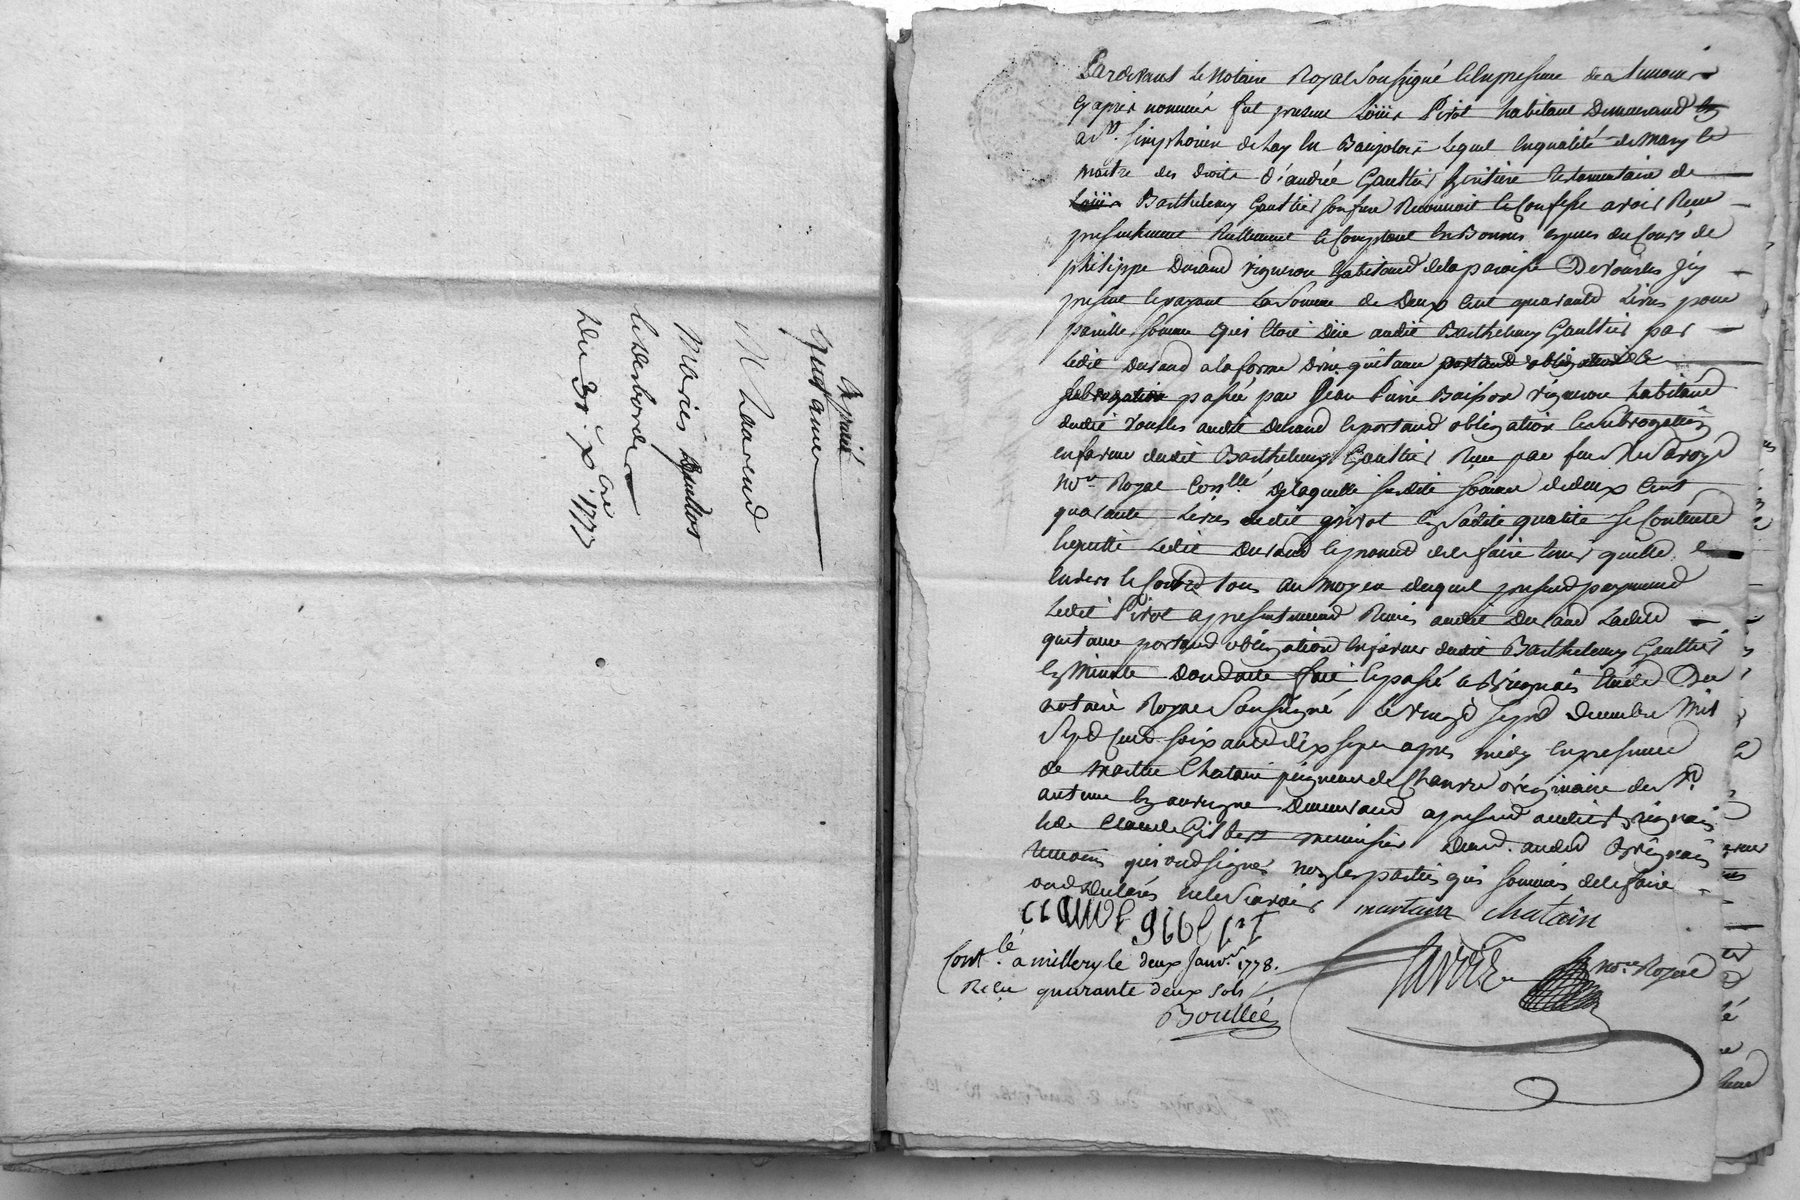 quittance
M. Laarend
Maries
Desbordes
Du Xbre 1777
Pardevant le Notaire Royal soussigné & en presence des temoins
cy apres nommés fut present Loüis Pirot habitant demeurant
a St. simphorien de Lay en Baujolois lequel en qualité de mary &
maitre des droits d'andrée Gaultier heritiere testamentaire de
Barthelemy Gaultier son frere Reconnoit & Confesse avoir Receu
presentement Reellement & Comptant en Bonnes especes du Cours de
philippe Durand vigneron habitant de la paroisse De vourles icy
present & payant La somme de Deux Cent quarante Livres pour
pareille somme qui etoit düe audit Barthelemy Gaultier par
Ledit Durand a la forme d'une quittance
passée par Jean Pierre vigneron habitant
dudit vourles audit Durand & portand obligation & subrogation
en faveur dudit Barthelemy Gaultier Receu par feu
nore Royal De laquelle susdite somme de deux Cent
quarante Livres Ledit pirot en sadite qualité se Contente
& quitte Ledit Durand & promet de le faire tenir quitte
envers & Contre tous au moyen duquel present payement
Ledit Pirot a presentement Remis audit Durand Ladite
quittance portand obligation en faveur dudit Barthelemy Gaultier
en Minute Dont acte fait & passé a Brignais Etude Du
notaire Royal soussigné, le vingt sept Decembre Mil
sept Cent soixante dix sept apres midy en presence
de Martin Chatain peigneur de Chanvre originaire de St.
en auvergne Demeurand a present audit Brignais
& de Claude Gilbert menuisier Demt. audit Brignais
temoins qui ont signé non les parties qui sommées de le faire
ont declarés ne le savoir martain chatain
CLAUDE gilbert
nore Royal
Contlé. a millery le deux Janvr. 1778.
Reçu quarante deux sols
Boullée